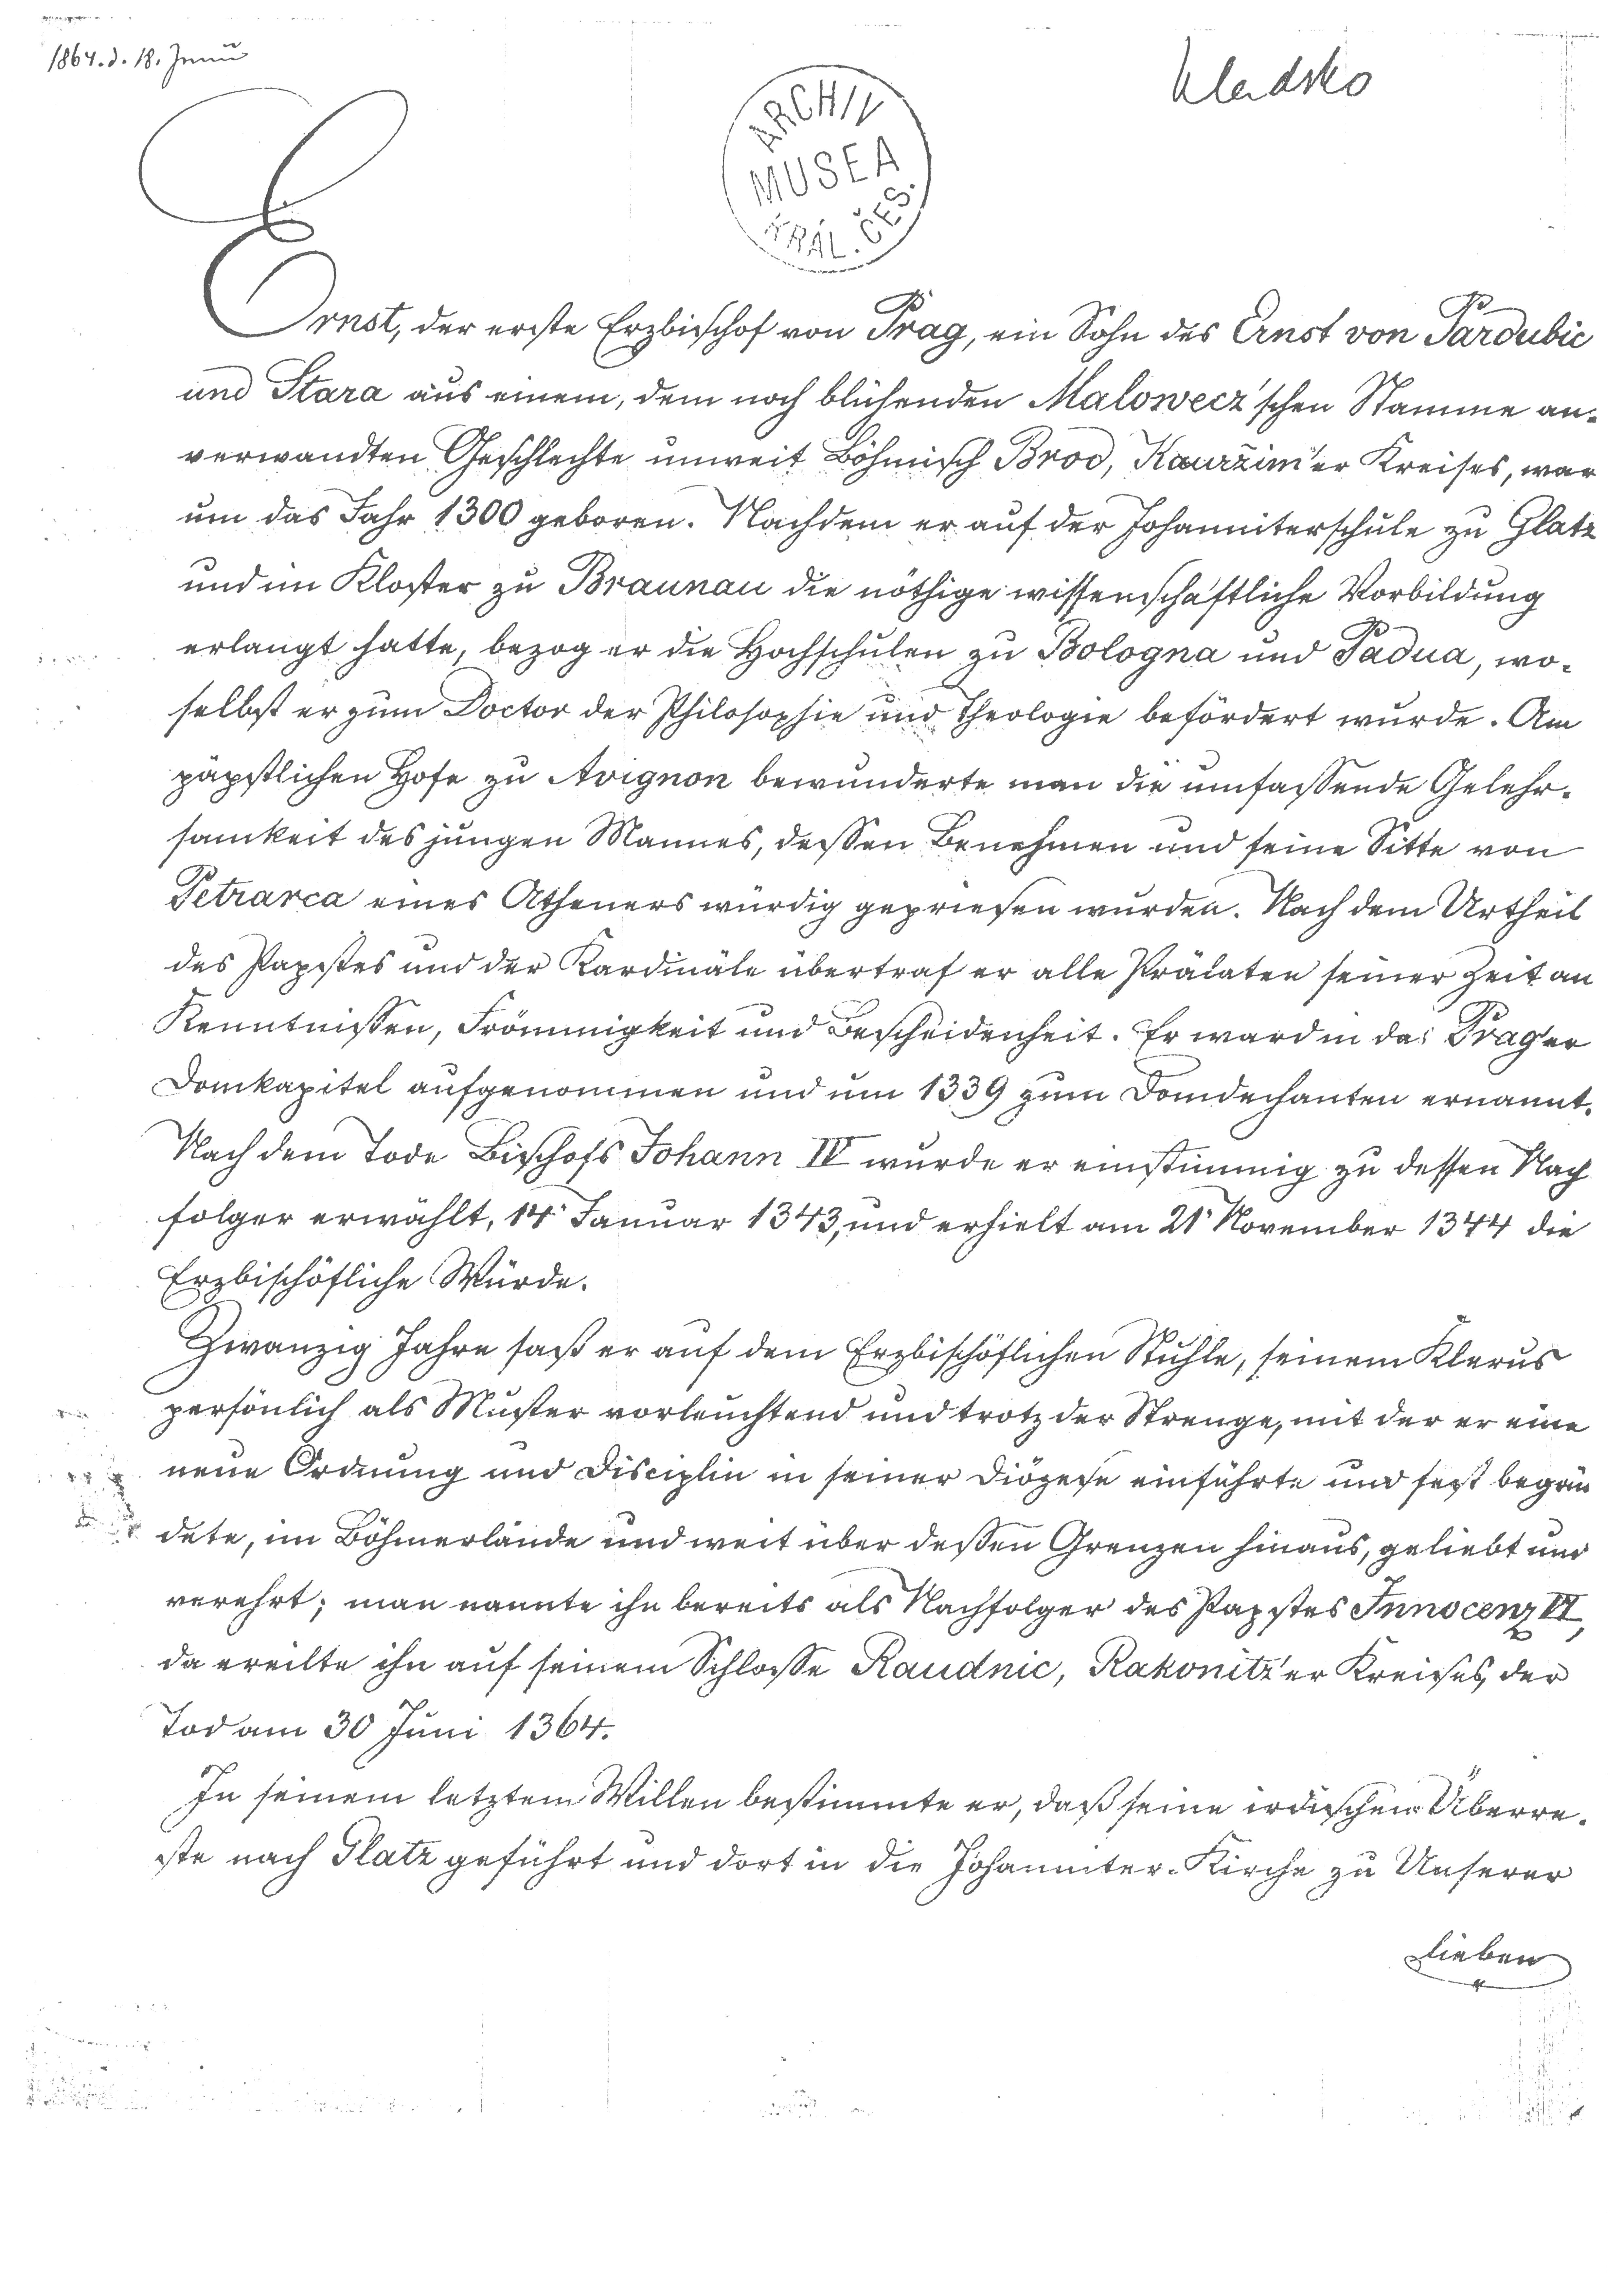 1864. d. 18. Junii
Kladsko
ARCHIV
MUSEA
KRÁL. ČES.
Ernst, der erste Erzbischof von Prag, ein Sohn des Ernst von Pardubic
und Stara aus einem, dem noch blühenden Malowecz'schen Stamme an-
verwandten Geschlechte unweit Böhmisch Brod, Kaurzim'er Kreises, war
um das Jahr 1300 geboren. Nachdem er auf der Johanniterschule zu Glatz
und im Kloster zu Braunau die nöthige wissenschaftliche Vorbildung
erlangt hatte, bezog er die Hochschulen zu Bologna und Padua, wo-
selbst er zum Doctor der Philosophie und Theologie befördert wurde. Am
päpstlichen Hofe zu Avignon bewunderte man die umfassende Gelehr-
samkeit des jungen Mannes, dessen Benehmen und feine Sitte von
Petrarca eines Atheners würdig gepriesen wurden. Nach dem Urtheil
des Papstes und der Kardinäle übertraf er alle Prälaten seiner Zeit an
Kenntnissen, Frömmigkeit und Bescheidenheit. Er ward in das Prager
Domkapitel aufgenommen und um 1339 zum Domdechanten ernannt.
Nach dem Tode Bischofs Johann IV wurde er einstimmig zu dessen Nach
folger erwählt, 14' Januar 1343, und erhielt am 21' November 1344 die
Erzbischöfliche Würde.
Zwanzig Jahre saß er auf dem Erzbischöflichen Stuhle, seinem Klerus
persönlich als Muster vorleuchtend und trotz der Strenge, mit der er eine
neue Ordnung und Disciplin in seiner Diözese einführte und fest begrün
dete, im Böhmerlande und weit über dessen Grenzen hinaus, geliebt und
verehrt; man nannte ihn bereits als Nachfolger des Papstes Innocenz VI,
da ereilte ihn auf seinem Schlosse Raudnic, Rakonitz'er Kreises, der
Tod am 30 Juni 1364.
In seinem letztem Willen bestimmte er, daß seine irdischen Überre-
ste nach Glatz geführt und dort in die Johanniter-Kirche zu Unserer
Lieben